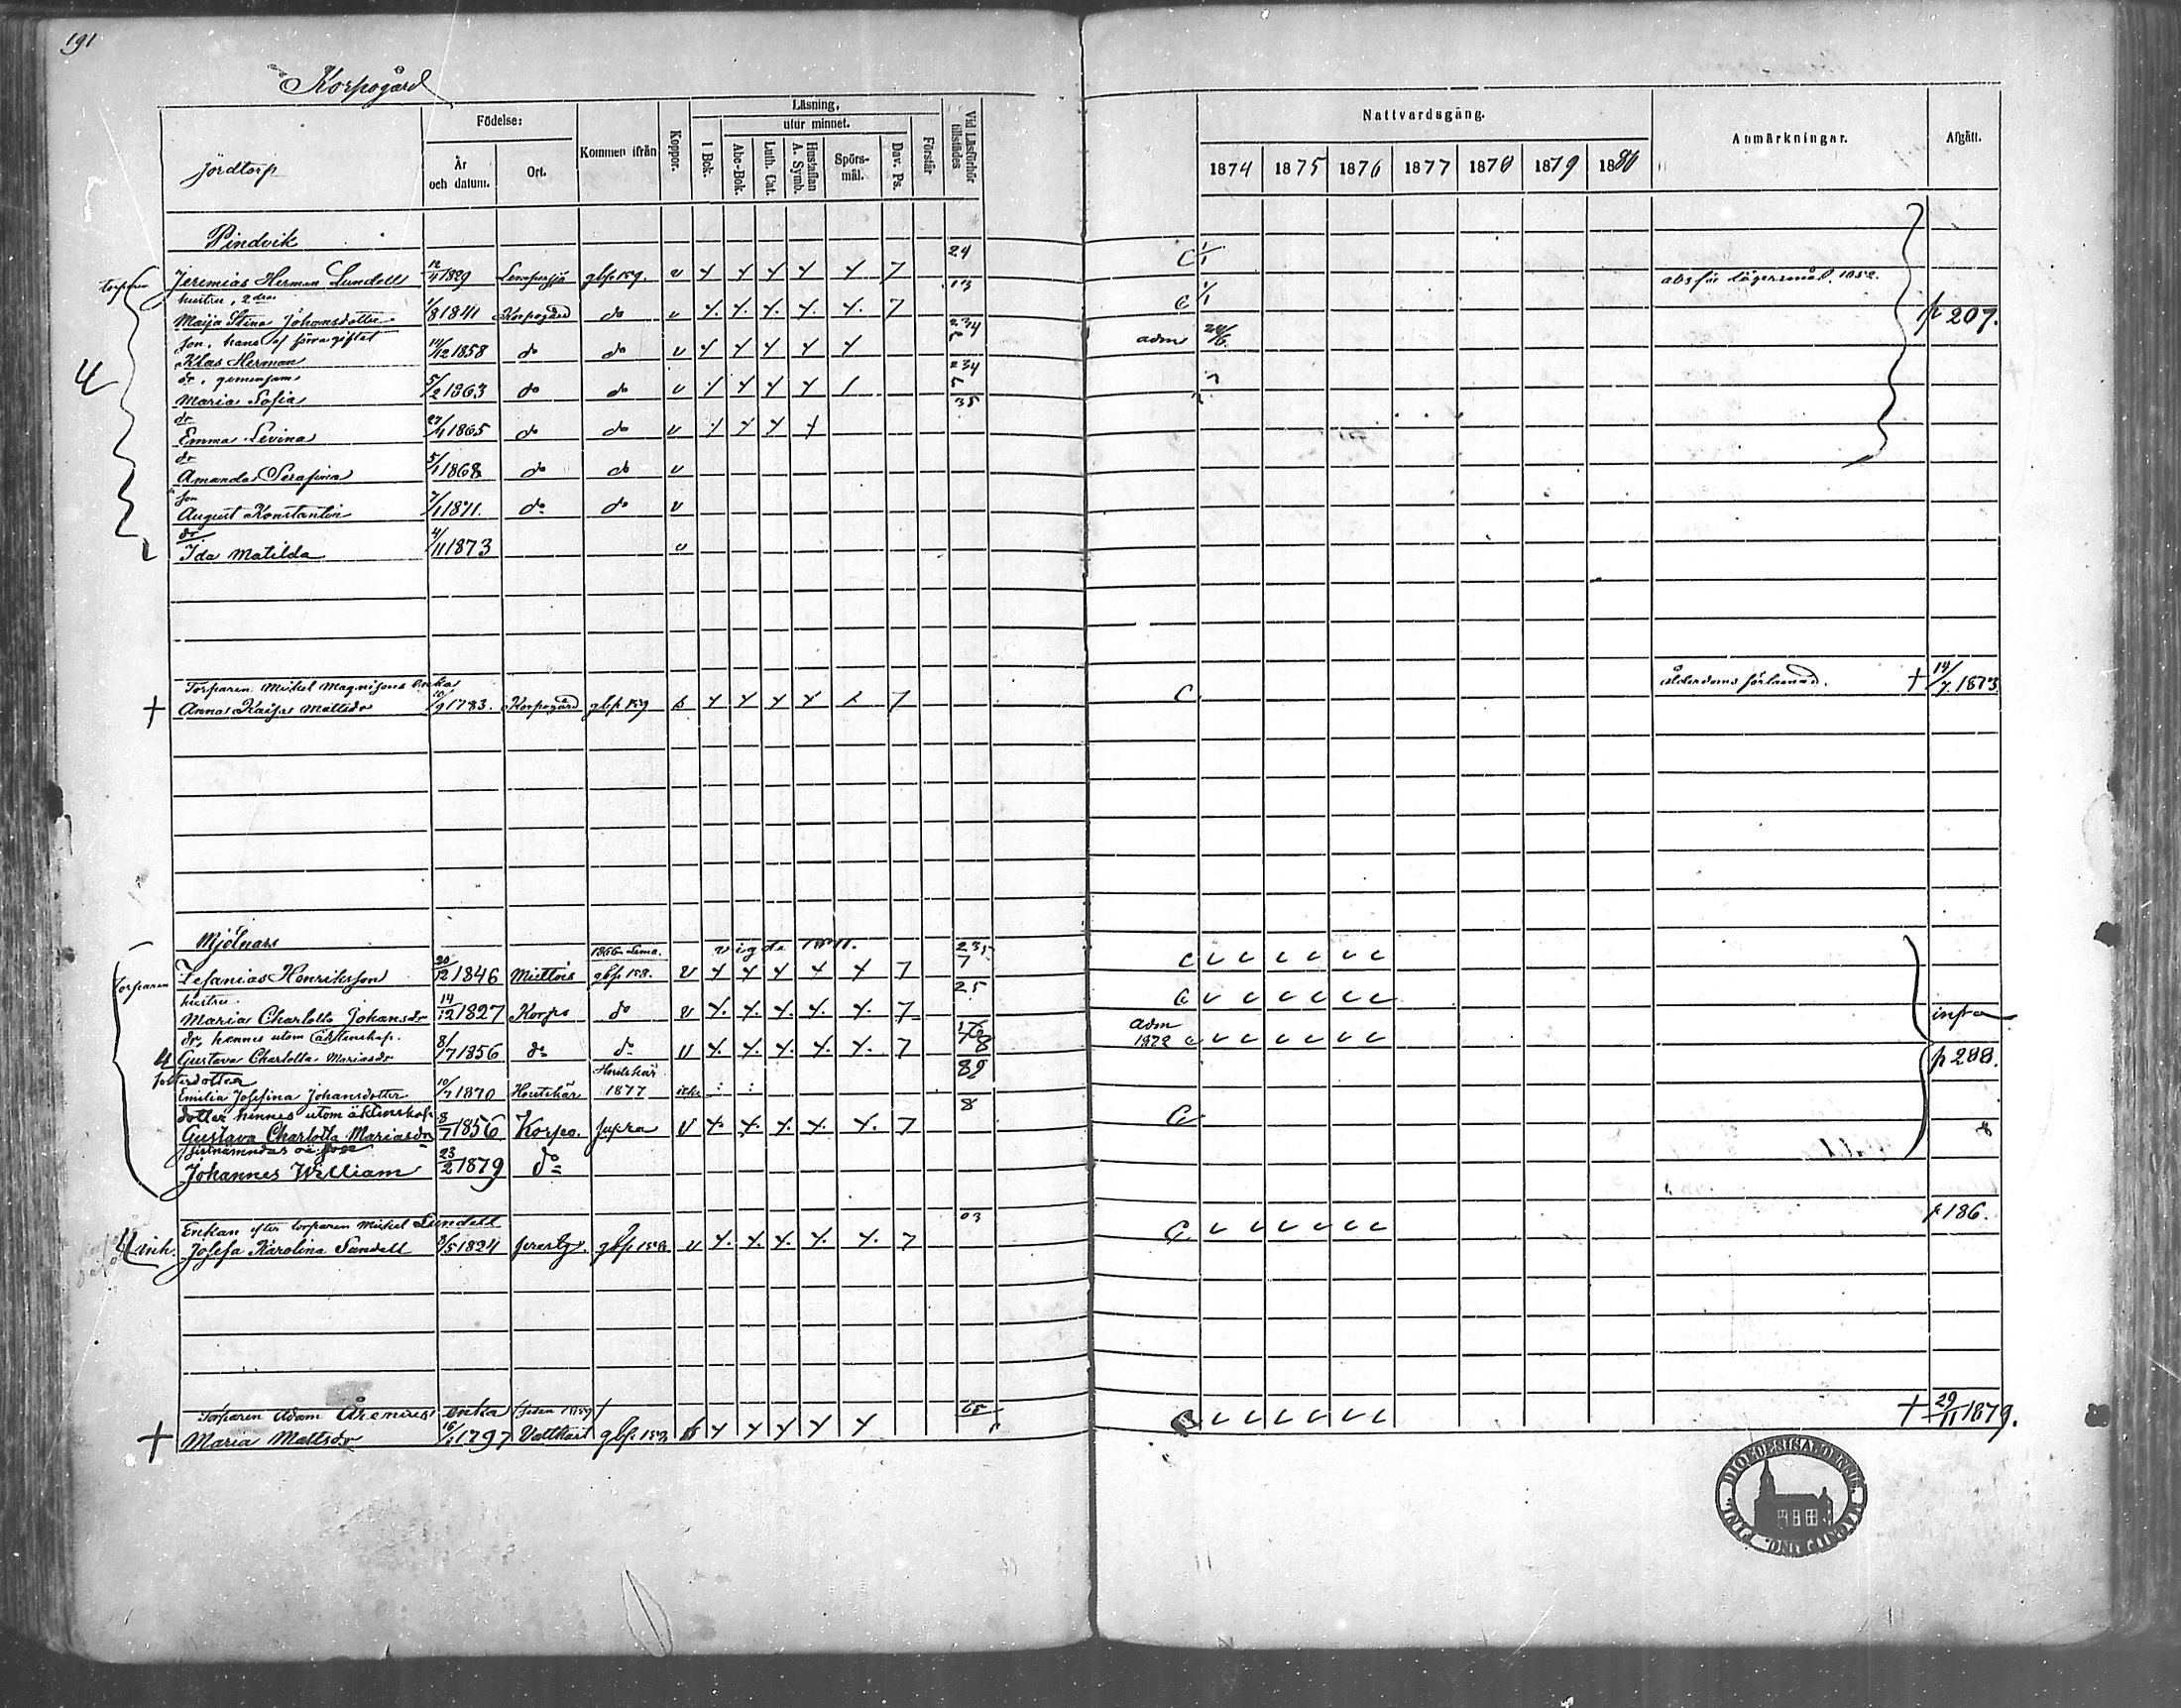 191
Korpogård
Jordtorp
Födelse:
År och datum.
Ort.
Kommen ifrån
Koppor.
Läsning,
utur minnet.
I Bok.
Abc-Bok.
Luth. Cat.
Hustaflan A. Symb.
Spörs-mål.
Dav. Ps.
Förstår
Vid Läsförhör tillstädes
Nattvardsgång.
1874 1875 1876 1877 1878 1879 1880
Anmärkningar.
Afgått.
Pindvik
24
torparen Jeremias Herman Lundell 12/4 1829 gbp 159. v 7 C 1/1
abs för lägersmål. 1852.
hustru, 2dra 13
Maija Stina Johansdotter 1/8 1841 Korpogård do v 7 C 1/1 p 207.
son, hans af förra giftet 234
Klas Herman 14/12 1858 do do v 5 adm 24/6
dr, gemensam 234
4 Maria Sofia 5/2 1863 do do v 5
dr 35
Emma Levina 27/4 1865 do do v
dr
Amanda Serafina 5/1 1868 do do v
son
August Konstantin 7/1 1871. do do v
dr
Ida Matilda 4/11 1873 v
Torparen Mickel Magnusons enka
† Anna Kaisa Mattsdr 10/9 1783. Korpogård gbp 159 7 C
ålderdoms förlamad. † 14/7 1873
Mjölnars
1866 vigde 23,
torparen Zefanias Henriksson 20/12 1846 gbp 158. v 7 7 C
hustru 25
Maria Charlotta Johansdr 14/12 1827 Korpo do v 7 C infra
dr, hennes utom äktenskap. adm
4 Gustava Charlotta Mariasdr 8/7 1856 do do v 7 1872 c p 288.
fosterdotter 89
Emilia Josefina Johansdotter 10/7 1870 Houtskär 1877 icke
dotter hennes utom äktenskap 8
Gustava Charlotta Mariasdr 8/7 1856 Korpo. supra v 7 C
sistnämndas oä. son
Johannes William 23/2 1879 do
Enkan efter torparen Mickel Lundell 03
4 inh. Josefa Karolina Sundell 3/5 1824 gbp 158 v 7 C p 186.
Torparen Adam Årenius' enka (sedan 1859) 65
† Maria Mattsdr 1797 gbp. 153 C † 29/11 1879.
DIOECESIS ABOENSIS
MAGNI DUC. FINL.